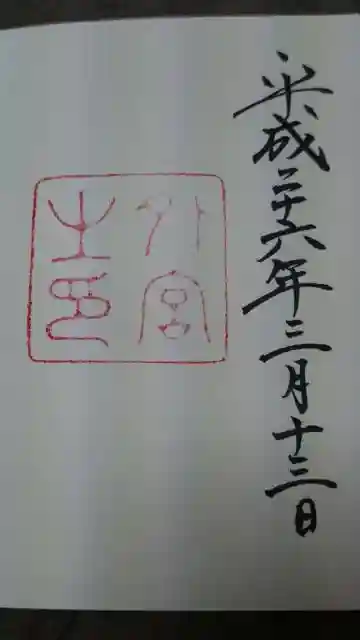 平成二十六年三月十三日
外宮
之印